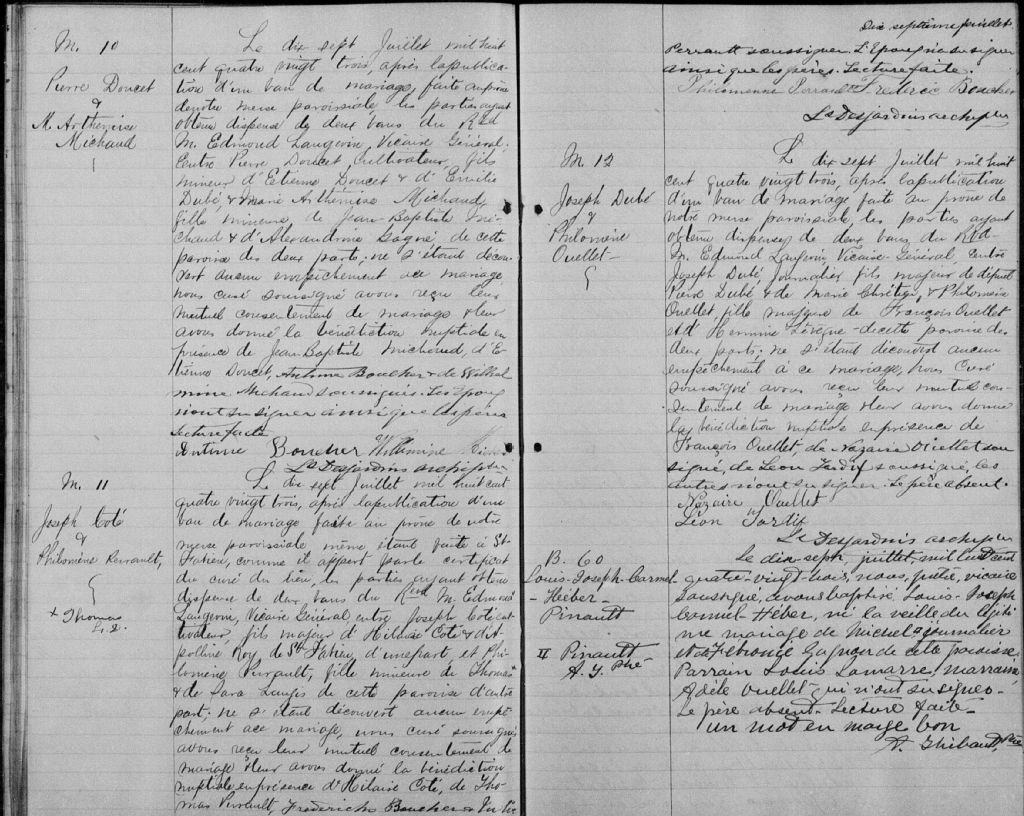 M. 10
Pierre Doucet
&
M. Arthémise
Michaud
Le dix sept Juillet mil huit
cent quatre vingt trois, après lapublica-
tion d'un ban de mariage faite au prône
denotre messe paroissiale les parties ayant
obtenu dispense de deux bans du Rvd
M. Edmond Langevin, Vicaire Général,
Entre Pierre Doucet, Cultivateur, fils
mineur d'Etienne Doucet & d'Emilie
Dubé, & Marie Arthémise Michaud,
fille mineure de Jean-Baptiste Mi-
chaud & d'Alexandrine Gagné de cette
paroisse des deux parts, ne s'étant décou-
vert aucun empêchement ace mariage,
nous curé soussigné avons reçu leur
mutuel consentement de mariage & leur
avons donné la bénédiction nuptiale en
présence de Jean-Baptiste Michaud, d'E-
tienne Doucet, Antoine Boucher & de Wilhel
mine Michaud soussignés. Les Epoux
n'ont su signer ainsi que les pères
Lecture faite
Antoine Boucher Wilhelmine
Ls Desjardins archiptre
M. 11
Joseph Coté
&
Philomène Perrault,
+ Thomas
L. D.
Le dix sept Juillet mil huit cent
quatre vingt trois, après lapublication d'un
ban de mariage faite au prône de notre
messe paroissiale même étant faite à St
Fabien, comme il appert parle certificat
du curé du lieu, les parties ayant obtenu
dispense de deux bans du Rvd M. Edmond
Langevin, Vicaire Général, entre Joseph Coté cul-
tivateur, fils majeur d'Hilaire Coté & d'A-
polline Roy, de St Fabien, d'unepart et Phi-
lomène Perrault, fille mineure de Thomas
& de Sara Langis de cette paroisse d'autre
part; ne s'étant découvert aucun empê-
chement ace mariage, nous curé soussigné
avons reçu leur mutuel consentement de
mariage & leur avons donné la bénédiction
nuptiale enprésence d'Hilaire Coté, de Tho-
mas Perrault, Frederick Boucher &
Dix septième Juillet.
Perrault soussigner. L'Epoux n'a su signer
ainsi que les pères. Lecture faite.
Philomenne Perrault Frederic Boucher
Ls Desjardins archiptre
M 12
Joseph Dubé
&
Philomène
Ouellet
Le dix sept Juillet mil huit
cent quatre vingt trois, après lapublication
d'un ban de mariage faite au prone de
notre messe paroissiale, les parties ayant
obtenu dispenses de deux bans du Rvd
M. Edmond Langevin Vicaire-Général, Entre
Joseph Dubé Journalier fils majeur de défunt
Pierre Dubé & de Marie Chrétien, & Philomène
Ouellet, fille majeure de François Ouellet
et d'Hermine Lévêque decette paroisse des
deux parts; ne s'étant découvert aucun
empêchement à ce mariage, nous Curé
soussigné avons reçu leur mutuel con-
sentement de mariage & leur avons donné
la bénédiction nuptiale en présence de
François Ouellet, de Nazaire Ouellet sou
signé, de Léon Tardif soussigné, les
autres n'ont su signer. Le père absent.
Nazaire Ouellet
Léon Tardif
Ls Desjardins archiptre
B. 60
Louis-Joseph-Carmel
- Héber -
Pinault
# Pinault
A. T. Ptre
Le dix-sept, juillet, mil huit cent
quatre-vingt-trois, nous, prêtre, vicaire
soussigné, avons baptisé Louis-Joseph
Carmel Héber, né la veille du légiti
me mariage de Michel # journalier
et de Fébronie Gagnon de cette paroisse
Parrain Louis Lamarre, marraine,
Adèle Ouellet qui n'ont su signer-
Le père absent. Lecture faite-
un mot en marge bon
A. Thibault, Ptre